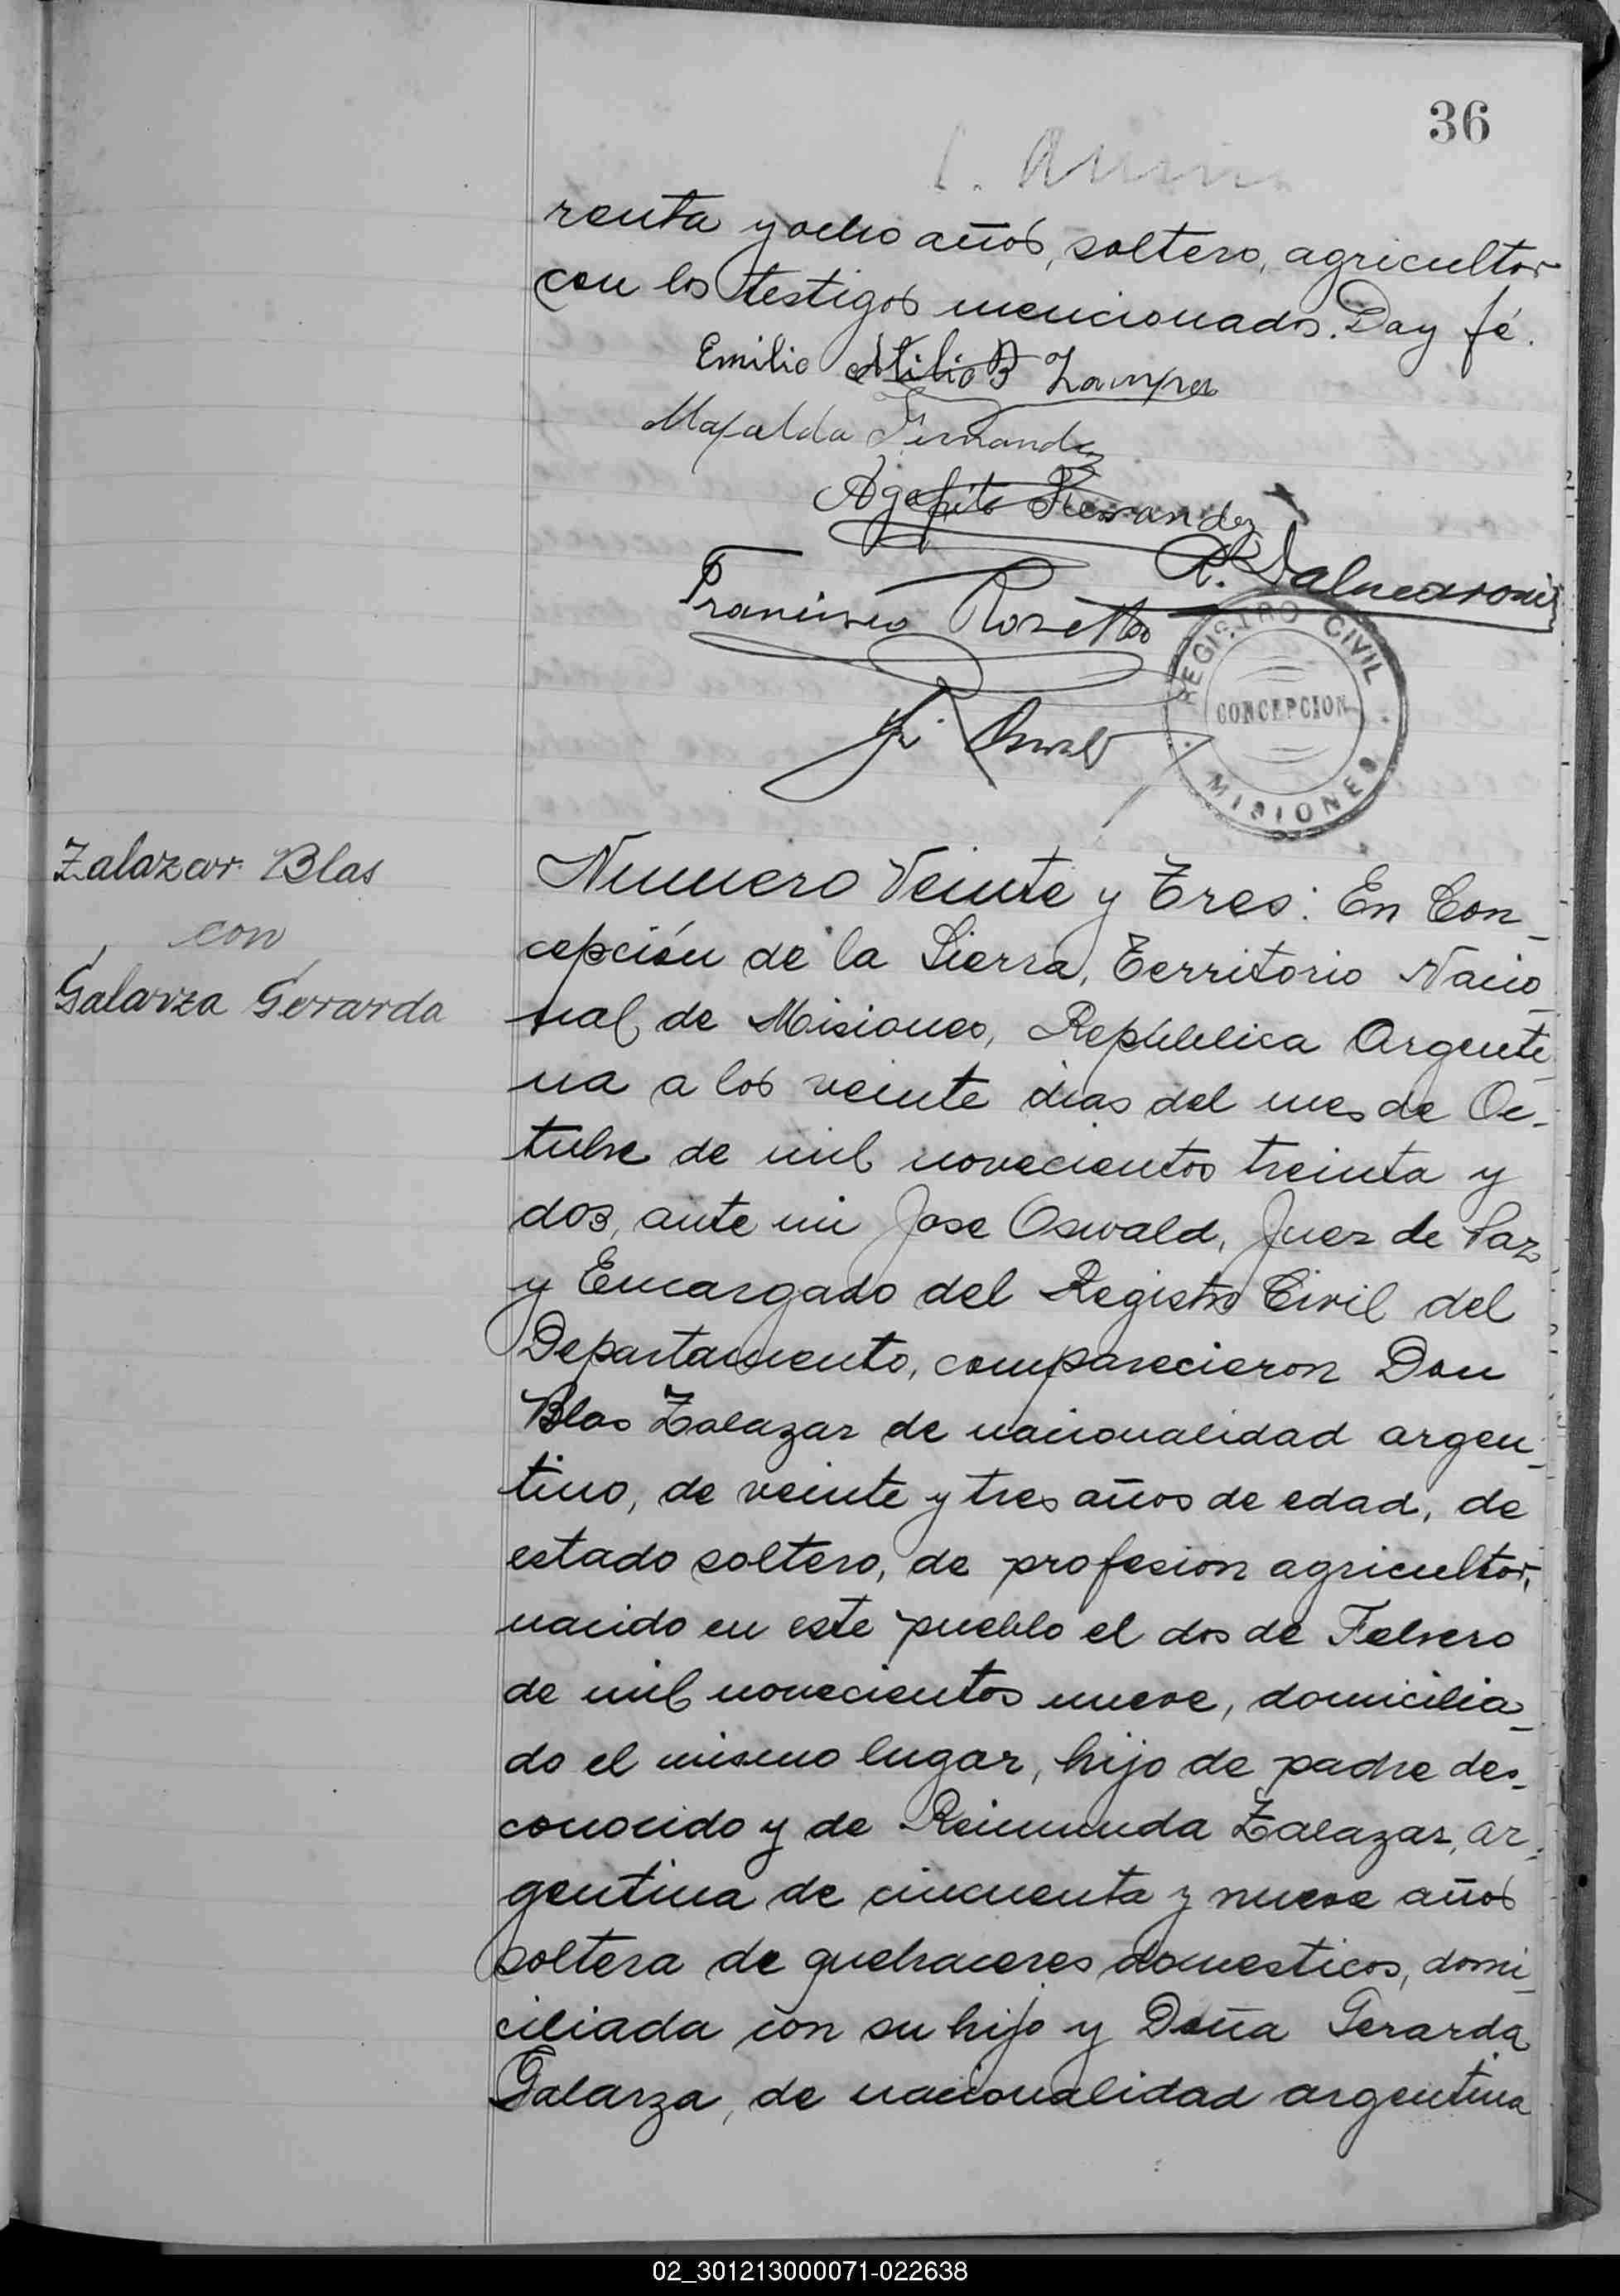 36
renta y ocho años, soltero, agricultor
con los testigos mencionados. Doy fé.
Emilio Atilio B Zampa
Mafalda Fernandez
Agapito Fernandez
Francisco Rosetto
REGISTRO CIVIL
CONCEPCION
MISIONES
J. Oswald
Zalazar Blas
con
Galarza Gerarda
Numero Veinte y Tres: En Con_
cepción de la Sierra, Territorio Nacio_
nal de Misiones, Republica Argenti_
na a los veinte dias del mes de Oc_
tubre de mil novecientos treinta y
dos, ante mi Jose Oswald, Juez de Paz
y Encargado del Registro Civil del
Departamento, comparecieron Don
Blas Zalazar de nacionalidad argen_
tino, de veinte y tres años de edad, de
estado soltero, de profesion agricultor,
nacido en este pueblo el dos de Febrero
de mil novecientos nueve, domicilia_
do el mismo lugar, hijo de padre des_
conocido y de Reimunda Zalazar, ar_
gentina de cincuenta y nueve años
soltera de quehaceres domesticos, domi_
ciliada con su hijo y Doña Gerarda
Galarza, de nacionalidad argentina
02_301213000071-022638